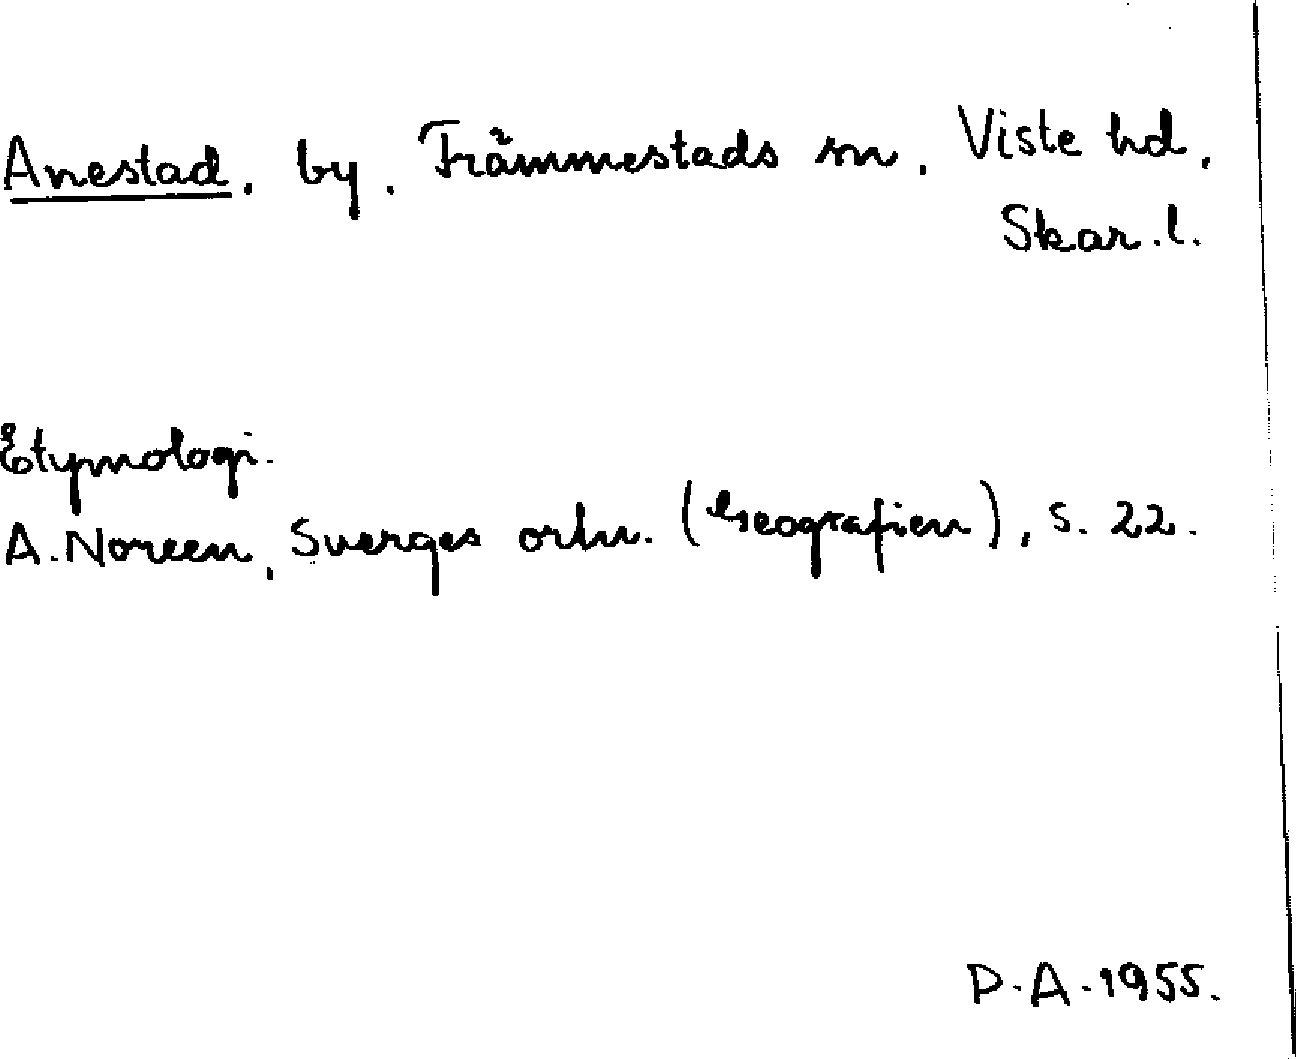 Anestad, by, Främmestads sn, Viste hd,
Skar. l.
Etymologi.
A. Noreen, Sverges ortn. (Geografien), s. 22.
P. A. 1955.